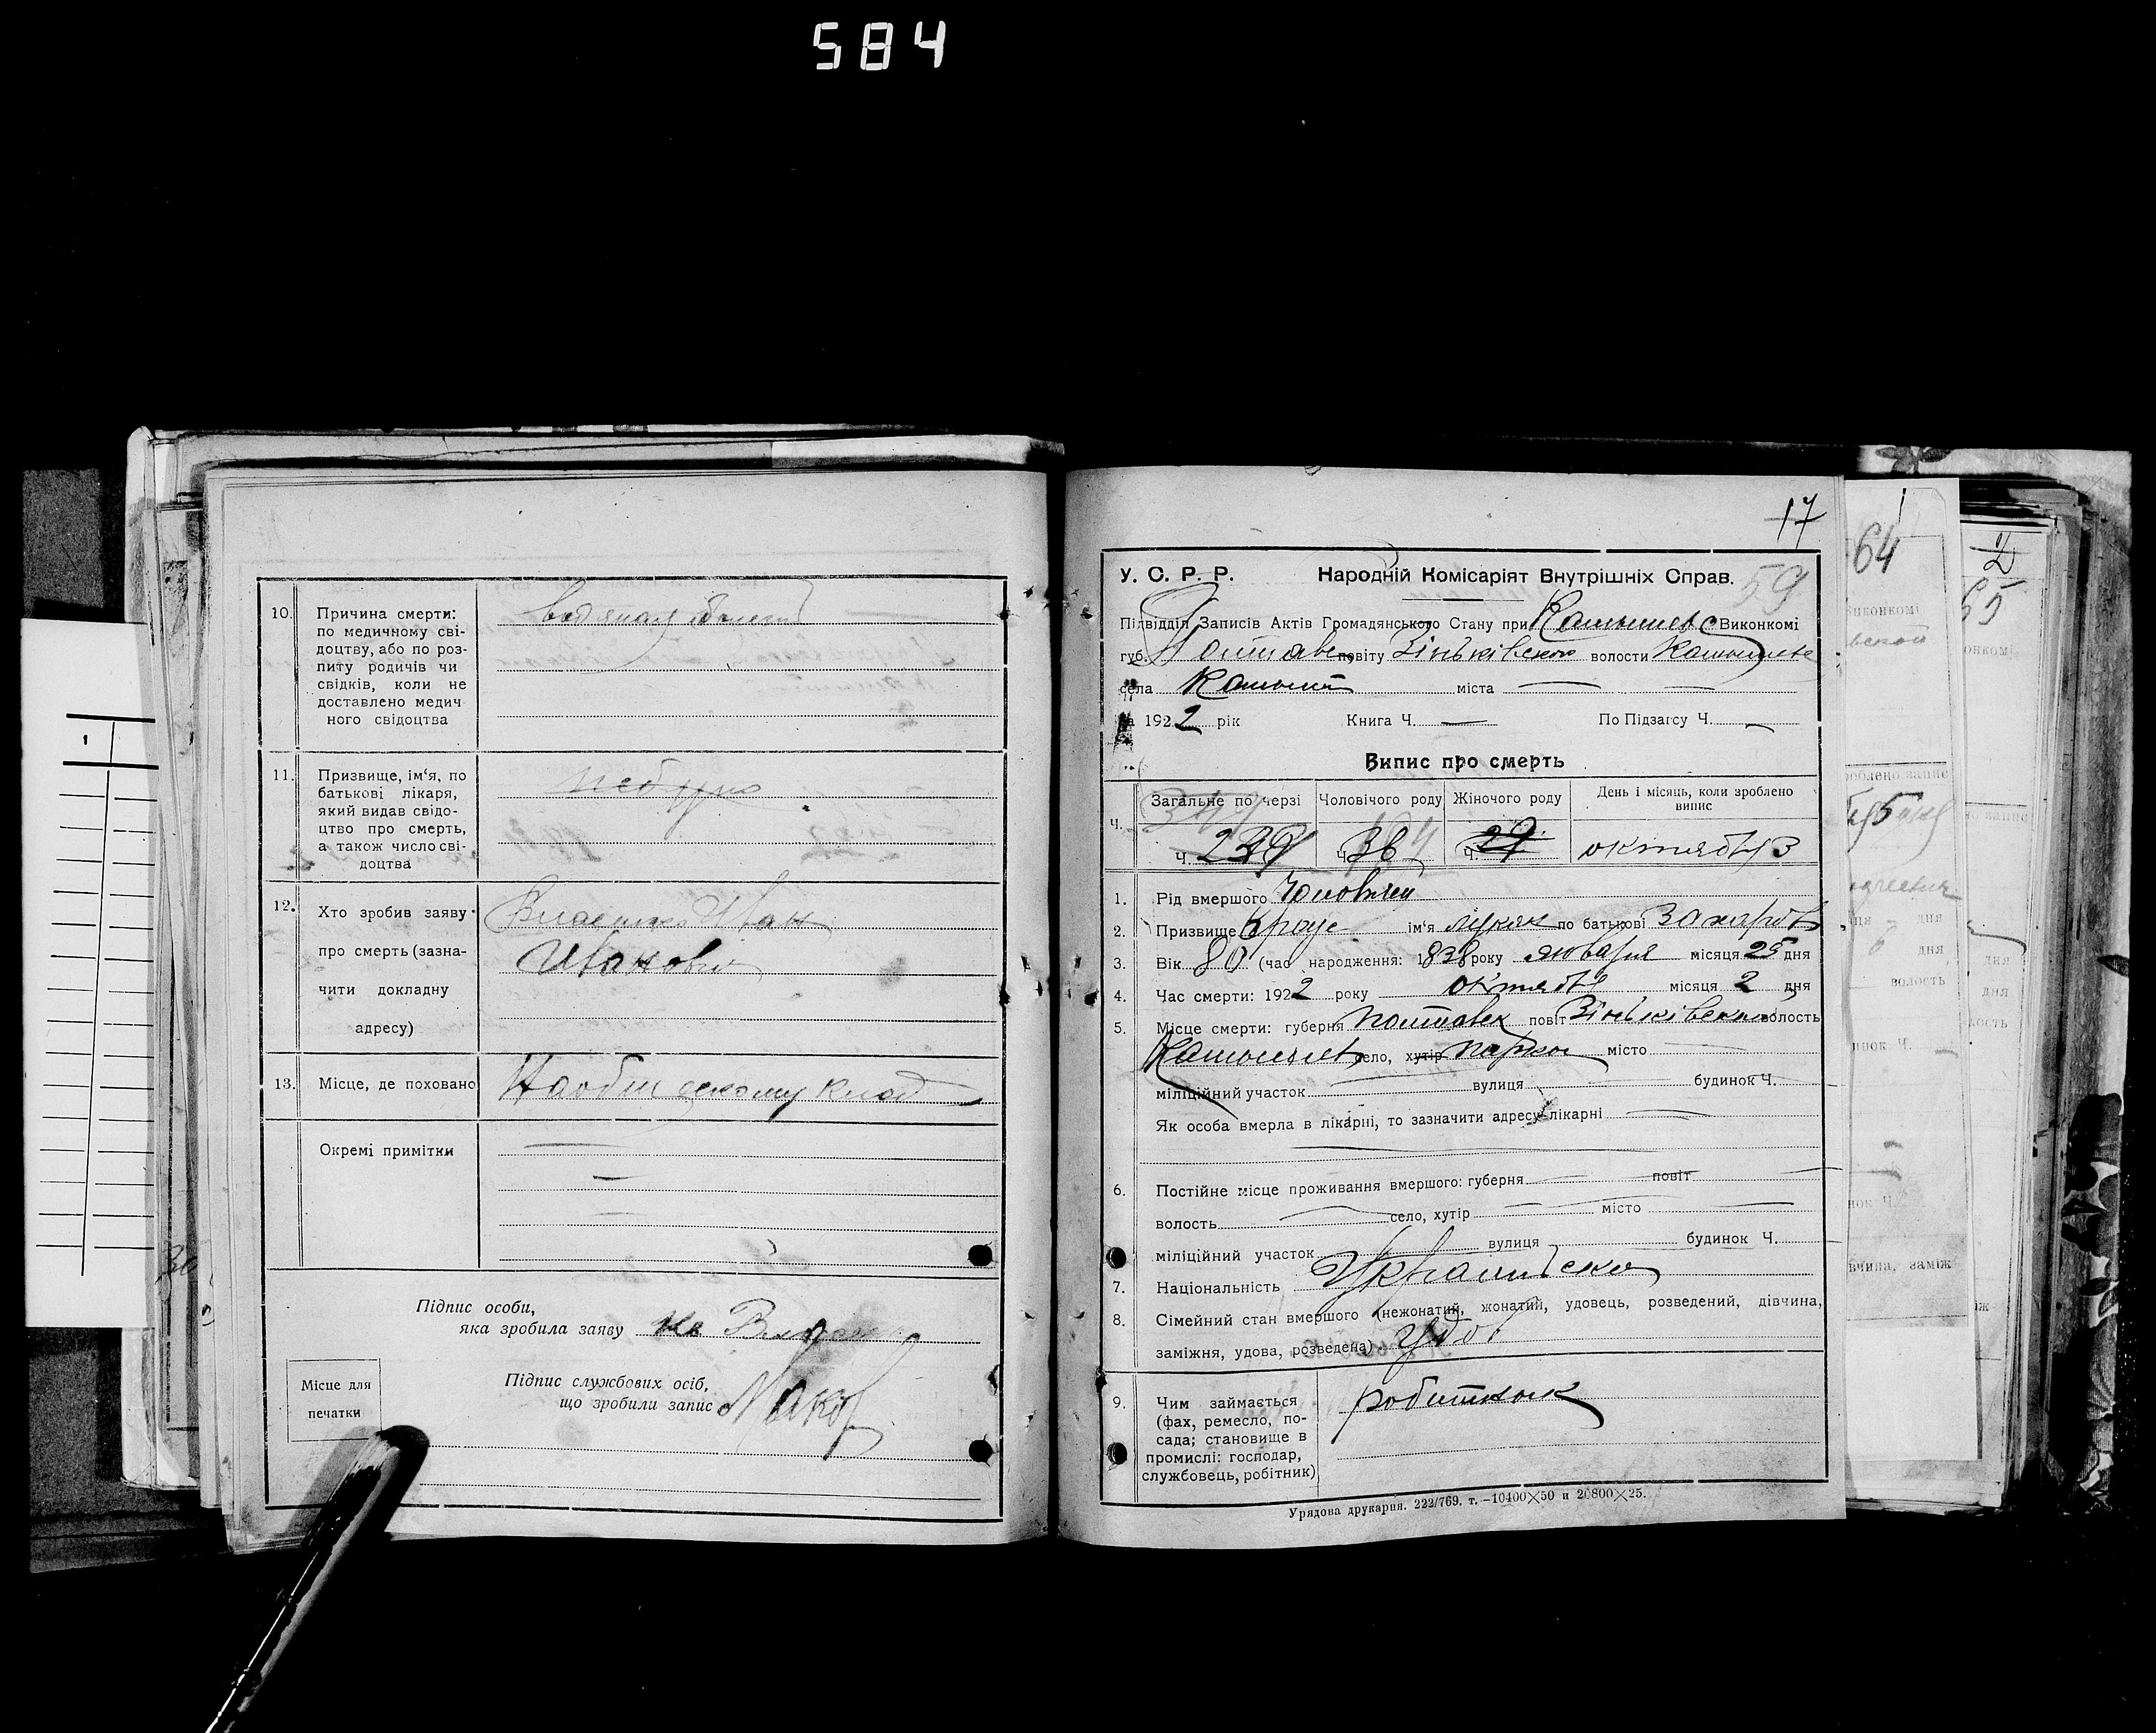 584
10. Причина смерти: по медичному сві-
доцтву, або по роз-
питу родичів чи
свідків, коли не
доставлено медич
ного свідоцтва
11. Призвище, ім‘я, по
батькові лікаря,
який видав свідо-
цтво про смерть,
а також число сві-
доцтва
12. Хто зробив заяву Иван
про смерть (зазна- Иванович
чити докладну
адресу)
13. Місце, де поховано
Окремі примітки
Підпис особи,
яка зробила заяву
Місце для
печатки
Підпис службових осіб,
що зробили запис
17
У. С. Р. Р. Народній Комісаріят Внутрішніх Справ. 59
Підвідділ Записів Актів Громадянського Стану при Виконкомі
губ. Полтавс повіту Зіньківского волости
села міста —
за 1922 рік Книга Ч. — По Підзагсу Ч. —
Випис про смерть
Ч. Загальне по черзі Чоловічого роду Жіночого роду День і місяць, коли зроблено
випис
349
Ч. 239 Ч. 36 Ч. 29 октября 3
1. Рід вмершого Чоловічий
2. Призвище ім‘я Лукян по батькові Захаров
3. Вік 80 (час народження: 1838 року января місяця 25 дня
4. Час смерти: 1922 року октября місяця 2 дня
5. Місце смерти: губерня Полтавск повіт Зіньківский волость
село, хутір місто —
міліційний участок — вулиця — будинок Ч.
Як особа вмерла в лікарні, то зазначити адресу лікарні —
6. Постійне місце проживання вмершого: губерня — повіт —
волость — село, хутір — місто —
міліційний участок вулиця будинок Ч.
7. Національність
8. Сімейний стан вмершого (нежонатий, жонатий, удовець, розведений, дівчина,
заміжня, удова, розведена) удов
9. Чим займається робитнык
(фах, ремесло, по-
сада; становище в
промислі: господар,
службовець, робітник)
Урядова друкарня. 222/769. т. —10400×50 и 20800×25.
64
2
65